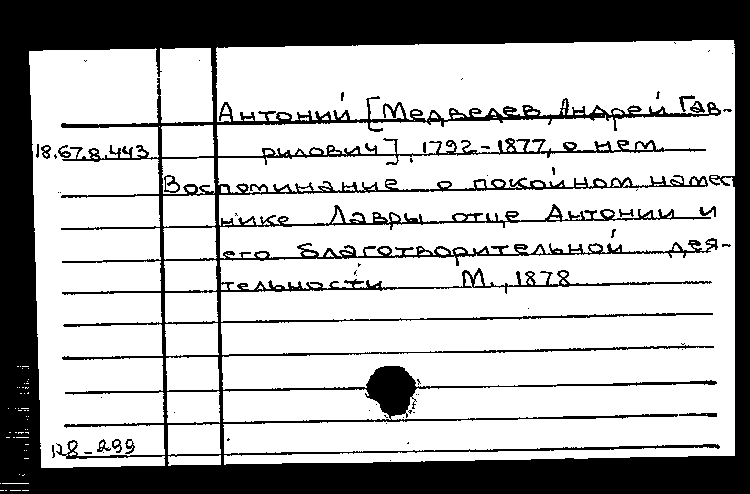 Антоний [Медведев, Андрей Гав-
18.67.8.443 рилович], 1792-1877, о нем.
Воспоминание о покойном намест
нике Лавры отце Антонии и
его благотворительной дея-
тельности М., 1878
128-299